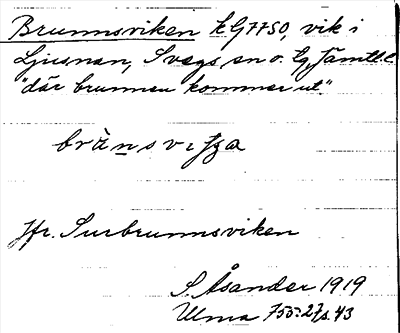 Brunnsviken k G7750, vik i
Ljusnan, Svegs sn o. lg, Jämtl. l.
"där brunnen kommer ut."
Jfr. Surbrunnsviken
S. Åsander 1919
Ulma 755:27 s. 43